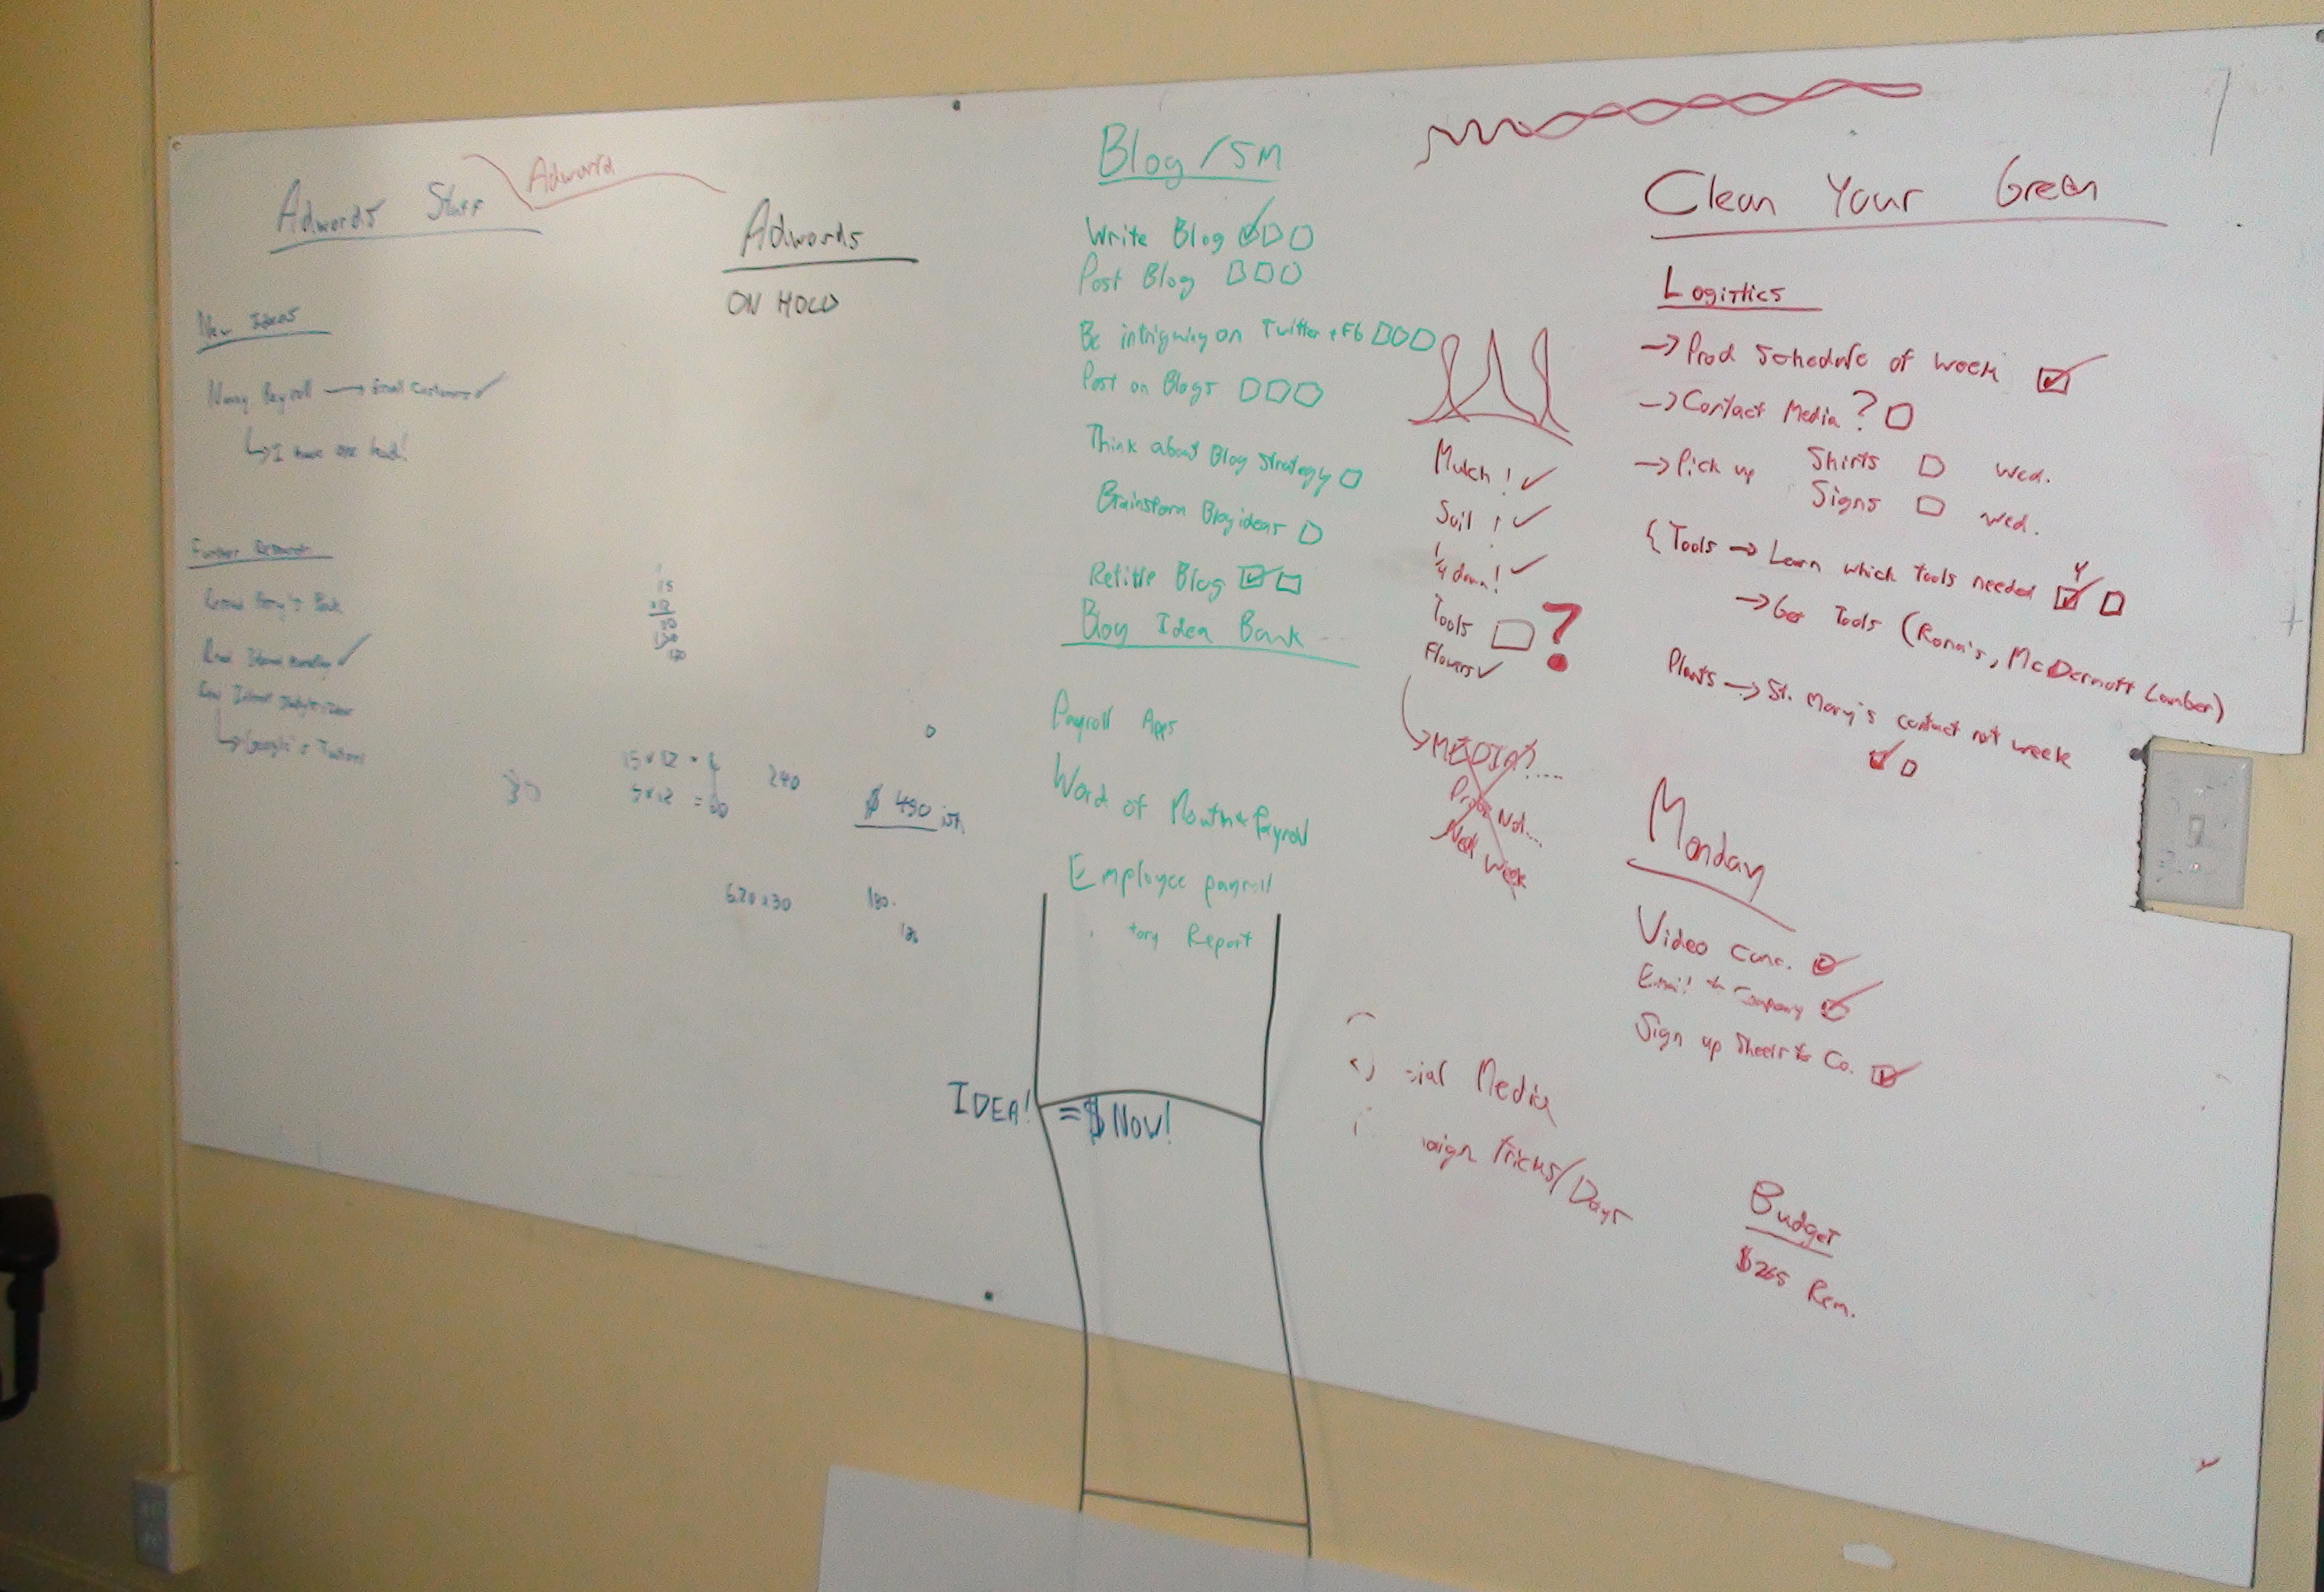 Adwords Stuff
Adword
New Ideas
Nanny Payroll → Email Customers ✓
↳ I have one lead!
Further Research
Read Internet Marketing ✓
↳ Google's Tutorial
Adwords
ON HOLD
15
15 x 12 =
5 x 12 = 60
240
$ 490 ish
30
6.20 x 30
180
Blog / SM
Write Blog
Post Blog
Be intriguing on Twitter + Fb
Post on Blogs
Think about Blog Strategy
Brainstorm Blog ideas
Retitle Blog
Blog Idea Bank
Payroll Apps
Word of Mouth + Payroll
Employee payroll
tory Report
IDEA! = $ Now!
Mulch! ✓
Soil! ✓
1/4 down! ✓
Tools ?
Flowers ✓
→ MEDIA?....
Probs Not...
Next Week
cial Media
aign Tricks/Days
Clean Your Green
Logistics
→ Prod Schedule of Week
→ Contact Media?
→ Pick up Shirts Wed.
Signs Wed.
{ Tools → Learn which tools needed
→ Get Tools (Rona's, McDermott Lumber)
Plants → St. Mary's contact not week
Monday
Video Conc.
Email to Company
Sign up Sheets to Co.
Budget
$265 Rem.